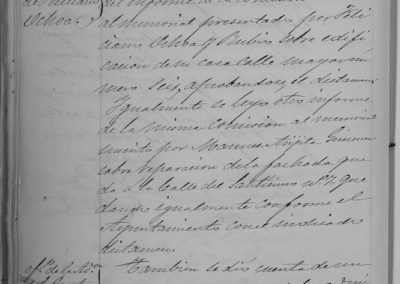 de Feliciano
Ochoa.
del informe de la Comision
al memorial presentado por Feli
ciano Ochoa y Rubio sobre edifi
cacion de su casa Calle mayor nú
mero seis, aprobandose el dictamen.
Igualmente se leyo otro informe
de la misma Comision al memorial
suscrito por Manuel Arjita Gimenez
sobre reparacion de la fachada que
da á la Calle del Santísimo nº 7. que
dandose igualmente conforme el
Ayuntamiento con el indicado
dictamen.
Tambien se dió cuenta de un